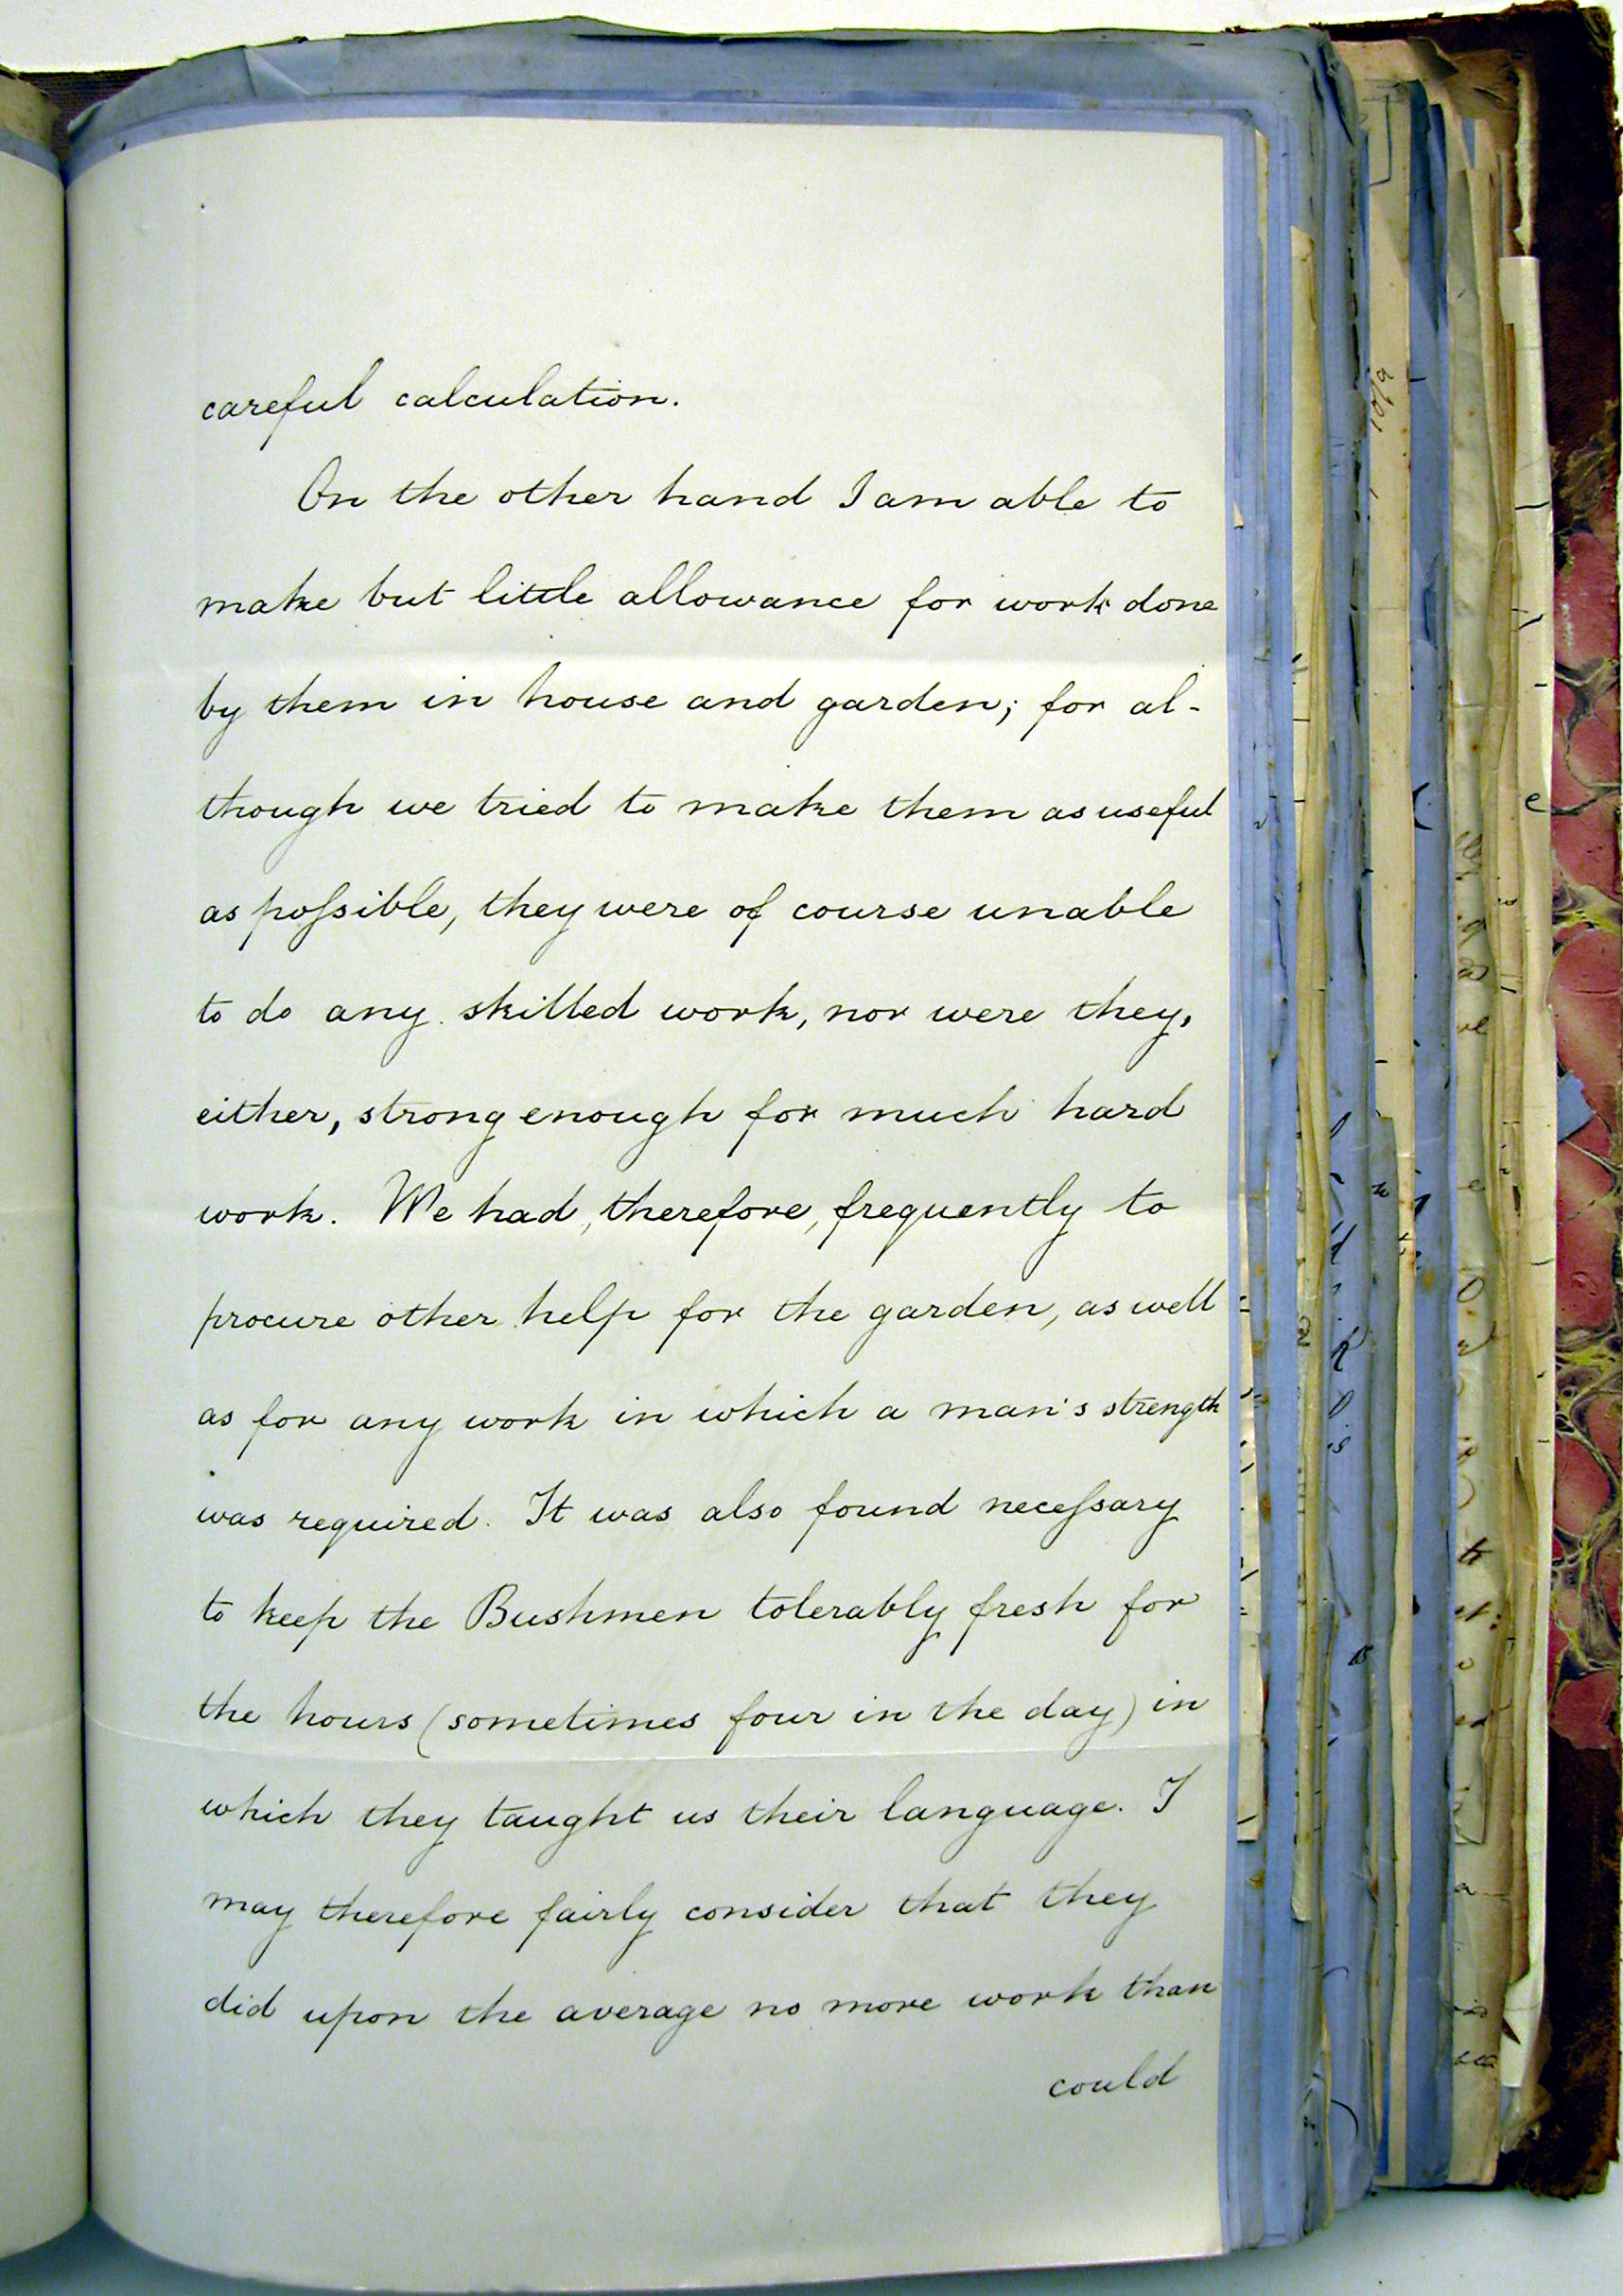 careful calculation.
On the other hand I am able to
make but little allowance for work done
by them in house and garden; for al-
though we tried to make them as useful
as poſsible, they were of course unable
to do any skilled work, nor were they,
either, strong enough for much hard
work. We had, therefore, frequently to
procure other help for the garden, as well
as for any work in which a man's strength
was required. It was also found neceſsary
to keep the Bushmen tolerably fresh for
the hours (sometimes four in the day) in
which they taught us their language. I
may therefore fairly consider that they
did upon the average no more work than
could